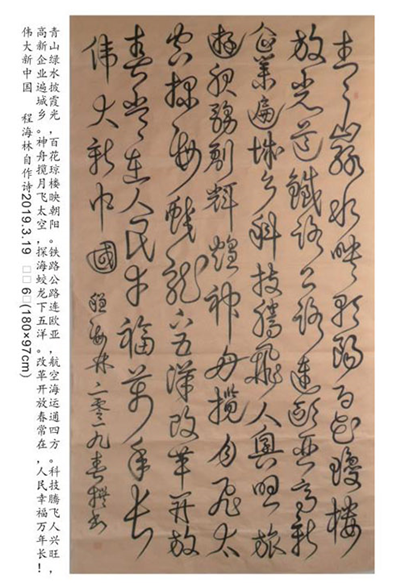 青山绿水映朝阳百花琼楼
放光芒鐵路公路連歐亚高新
企業遍城乡科技腾飛人興旺旅
游服務創輝煌神舟揽月飛太
空探海蛟龍下五洋改革开放
春常在人民幸福万年长
伟大新中國 程海林二零一九春撰书
青山绿水披霞光，百花琼楼映朝阳。铁路公路连欧亚，航空海运通四方。科技腾飞人兴旺，
高新企业遍城乡。神舟揽月飞太空，探海蛟龙下五洋。改革开放春常在，人民幸福万年长！
伟大新中国 程海林自作诗2019.3.19 □□6□(180×97cm)